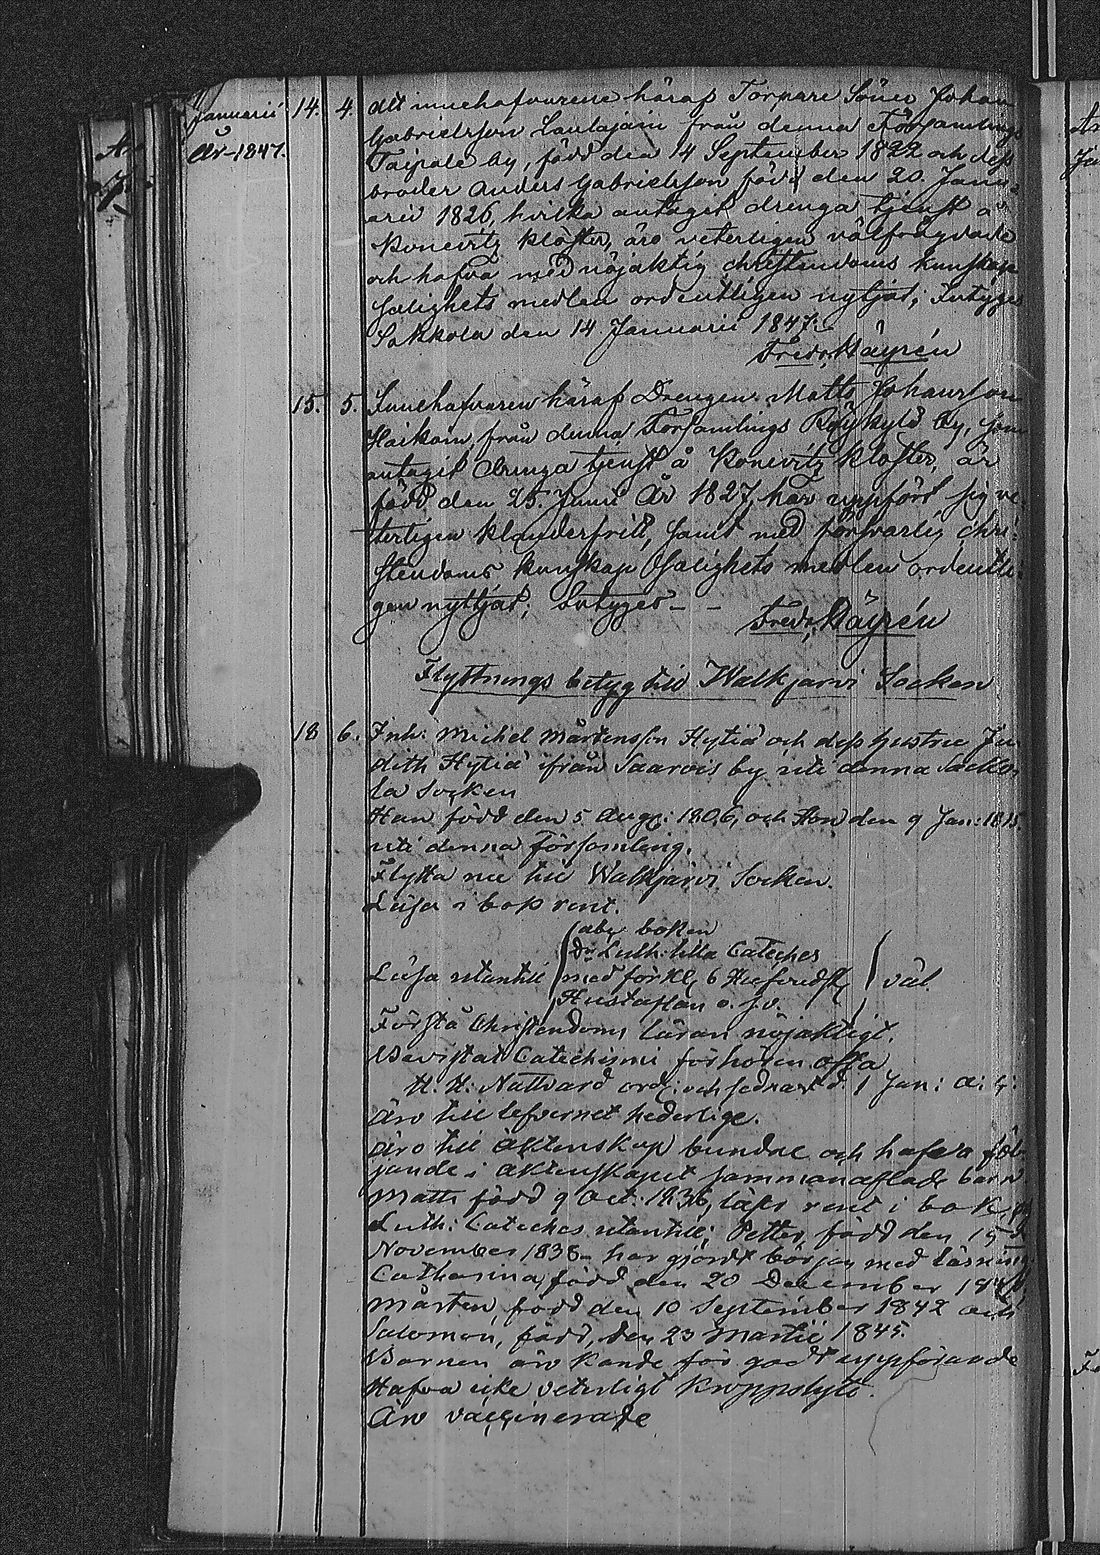 Januarii 14. 4. att innehafvarene häraf Torpare Söner Johan
År 1847. Gabrielsson Laulajain från denna Församlings
Taipale by, född den 14 September 1822 och dess
broder Anders Gabrielsson född den 20. Janu-
arii 1826, hvilka antagit drenga tjenst å
Konevitz Kloster, äro veterligen välfrägdade
och hafva med nöjaktig christendoms kunskap
salighets medlen ordentligen nyttjat; Intygas
Sakkola den 14 Januarii 1847.
Fredr. Häyrén
15. 5. Innehafvaren häraf Drengen Matts Johansson
Haikain, från denna Församlings Röykylä by, som
antagit drenga tjenst å Konevitz Kloster, är
född den 25. Junii År 1827, har uppfört sig ve-
terligen klanderfritt, samt med försvarlig Chri-
stendoms kunskap Salighets medlen ordentli-
gen nyttjat; Intyges
Fredr. Häyrén
Flyttnings betyg till Walkjärvi Socken
18 6. Inh: Michel Mårtensson Hytiä och dess hustru Ju
dith Hytiä ifrån Saarois by uti denna Sakko
la Socken
Han född den 5 Aug: 1806, och Hon den 9 Jan: 1815
uti denna församling.
Flytta nu till Walkjärvi Socken.
Läsa i bok rent.
abc boken
Dr Luth: lilla Cateches
Läsa utantill med förkl. 6 Hufvudst. väl.
Hustaflan o. s. v.
Förstå Christendoms läran nöjaktigt.
Bevistat Catechismi förhören ofta
H. H. Nattvard ord: och sednast d. 1 Jan: a: c:
Äro till lefvernet hederlige.
Äro till äktenskap bundne och hafva föl-
jande i äktenskapet sammanaflade barn
Matts född 9 Oct: 1836, läser rent i bok, och
Luth: Cateches utantill; Petter, född den 15
November 1838 har gjordt början med läsning
Catharina, född den 20 December
Mårten, född den 10 September 1842 och
Salomon, född, den 23 Martii 1845.
Barnen äro kände för godt uppförande
Hafva icke veterligt kroppslyte.
Äro vaccinerade